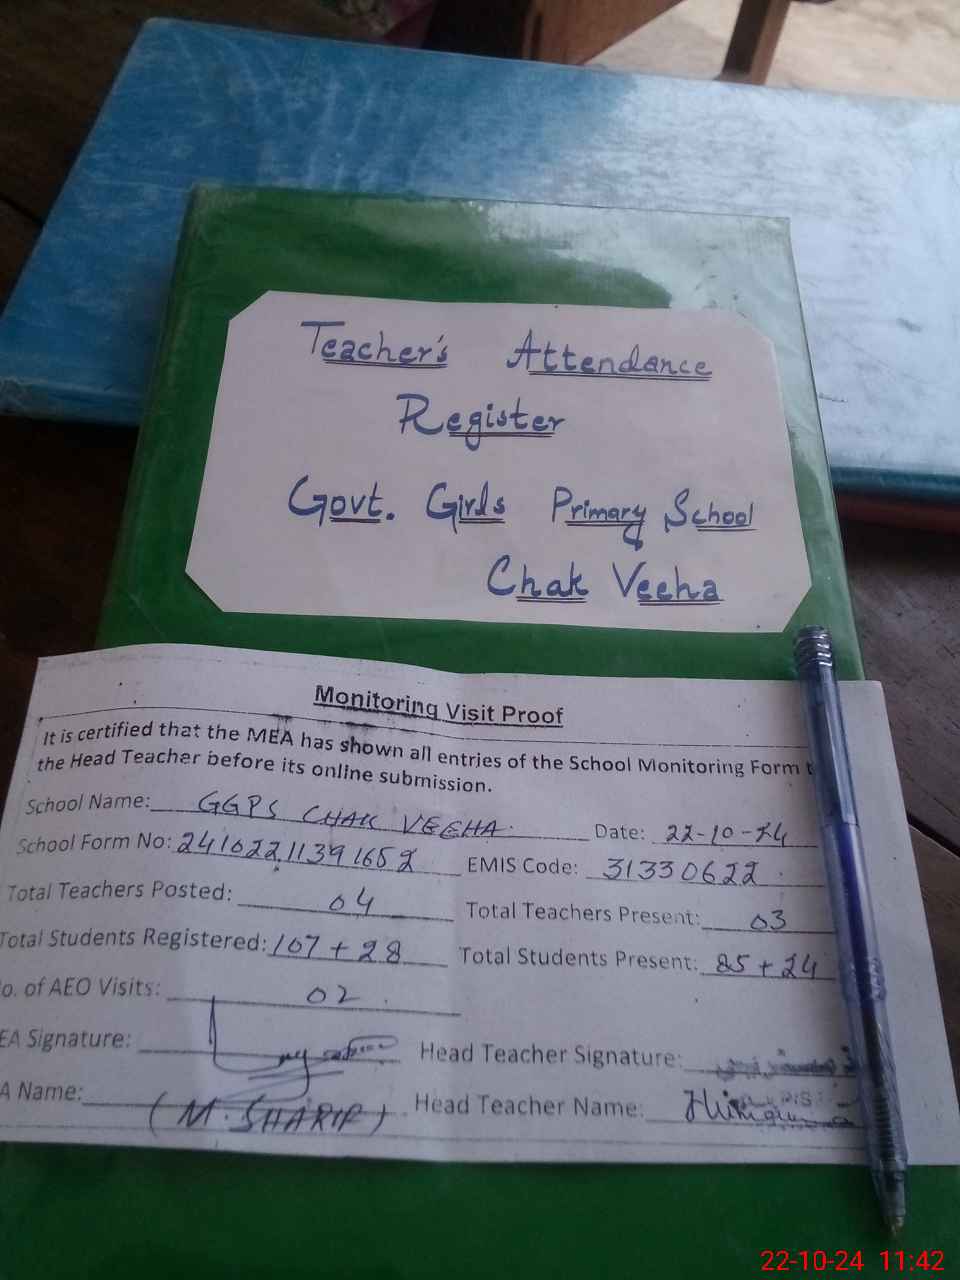 Teacher's Attendance
Register
Govt. Girls Primary School
Chak Veeha
Monitoring Visit Proof
It is certified that the MEA has shown all entries of the School Monitoring Form t
the Head Teacher before its online submission.
School Name: GGPS CHAK VEEHA. Date: 22-10-24
School Form No: 24102211391652 EMIS Code: 31330622
Total Teachers Posted: 04 Total Teachers Present: 03
Total Students Registered: 107 + 28 Total Students Present: 85 + 24
o. of AEO Visits: 02
EA Signature: Head Teacher Signature:
A Name: (M. SHARIF) Head Teacher Name:
22-10-24 11:42